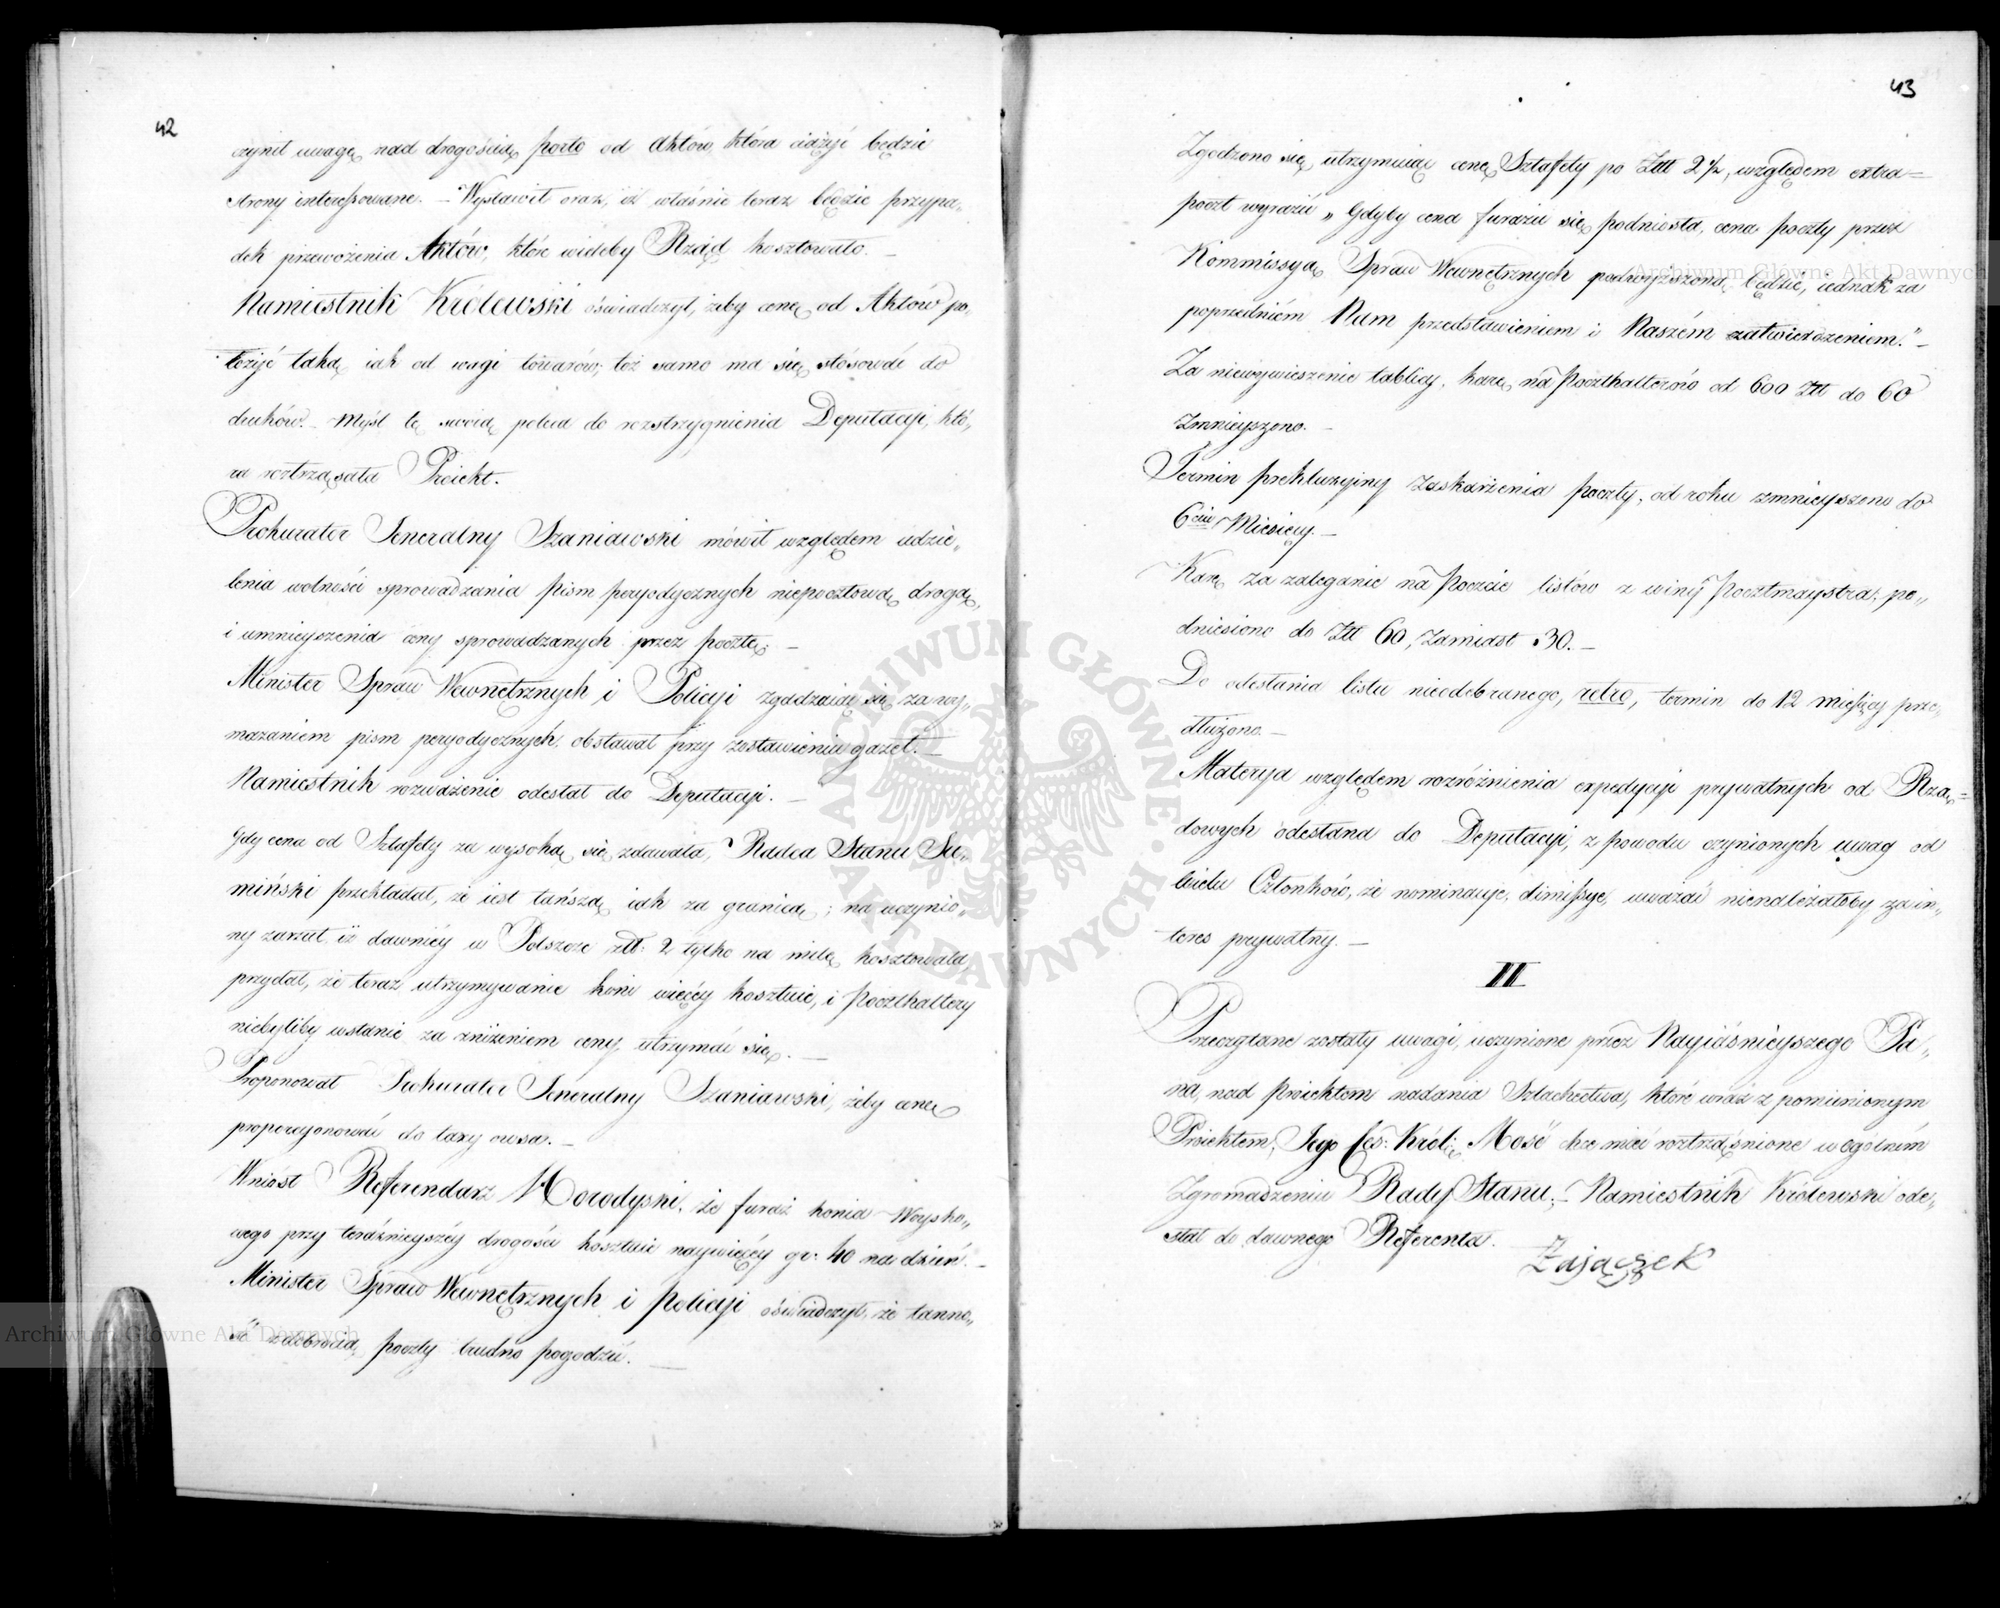 42
czynił uwagę nad drogością porto od Aktów, która ciążyć będzie
strony interessowane. – Wystawił oraz, iż właśnie teraz będzie przypa„
dek przewożenia Aktów, które wieleby Rząd kosztowało. –
Namiestnik Królewski oświadczył, żeby cenę od Aktów po„
łożyć taką iak od wagi towarów; toż samo ma się stósować do
druków. – Myśl tę swoią poleca do rozstrzygnienia Deputacji, któ„
ra roztrząsała Proiekt.
Prokurator Jeneralny Szaniawski mówił względem udzie„
lenia wolności sprowadzania pism peryodycznych niepocztową drogą,
i umnieyszenia ceny sprowadzanych przez pocztę. –
Minister Spraw Wewnętrznych i Policji zgadzaiąc się za wy„
mazaniem pism peryodycznych, obstawał przy zostawieniu gazet. –
Namiestnik rozważenie odesłał do Deputacji. –
Gdy cena od Sztafety za wysoką się zdawała, Radca Stanu Su„
miński przekładał, że iest tańszą iak za granicą; na uczynio„
ny zarzut, iż dawniéy w Polszcze złł: 2 tylko na milę kosztowała,
przydał, że teraz utrzymywanie koni więcéy kosztuie, i Poczthaltery
niebyliby wstanie za zniżeniem ceny, utrzymać się. –
Proponował Prokurator Jeneralny Szaniawski, żeby cenę
proporcyonować do taxy owsa. –
Wniósł Referendarz Horodyski, że furaż konia Woysko„
wego przy teraźnieyszéy drogości kosztuie naywięcéy gr: 40 na dzień. –
Minister Spraw Wewnętrznych i Policji oświadczył, że tanno„
ść z dobrocią poczty trudno pogodzić. –
43
Zgodzono się utrzymuiąc cenę Sztafety po Złł 2½, względem extra=
poczt wyrazić „Gdyby cena furażu się podniosła, cena poczty przez
Kommissyą Spraw Wewnętrznych podwyższoną będzie, iednak za
poprzedniém Nam przedstawieniem i Naszém zatwierdzeniem." –
Za niewywieszenie tablicy, karę na Poczthalterów od 600 Złł do 60
zmnieyszono. –
Termin prekluzyjny zaskarżenia poczty, od roku zmnieyszono do
6ciu Miesięcy. –
Karę za zaleganie na Poczcie listów z winy Pocztmaystra, po„
dniesiono do Złł 60, zamiast 30. –
Do odesłania listu nieodebranego, retro, termin do 12 miesięcy prze„
dłużono. –
Materya względem rozróżnienia expedycji prywatnych od Rzą=
dowych odesłana do Deputacji, z powodu czynionych uwag od
wielu Członków, że nominacye, dimissye, uważać nienależałoby za in„
teres prywatny. –
II
Przeczytane zostały uwagi, uczynione przez Nayiaśnieyszego Pa„
na, nad proiektem nadania Szlachectwa, które wraz z pomienionym
Proiektem, Jego Ces: Król: Mość chce mieć roztrząśnione w ogólném
Zgromadzeniu Rady Stanu; – Namiestnik Królewski ode„
słał do dawnego Referenta.
Zajączek
ARCHIWUM GŁÓWNE AKT DAWNYCH
Archiwum Główne Akt Dawnych
Archiwum Główne Akt Dawnych